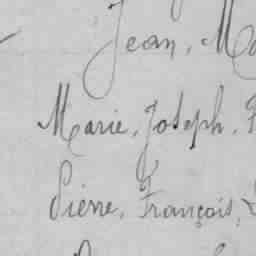 Jean, Ma
Marie, Joseph,
Pierre, François,